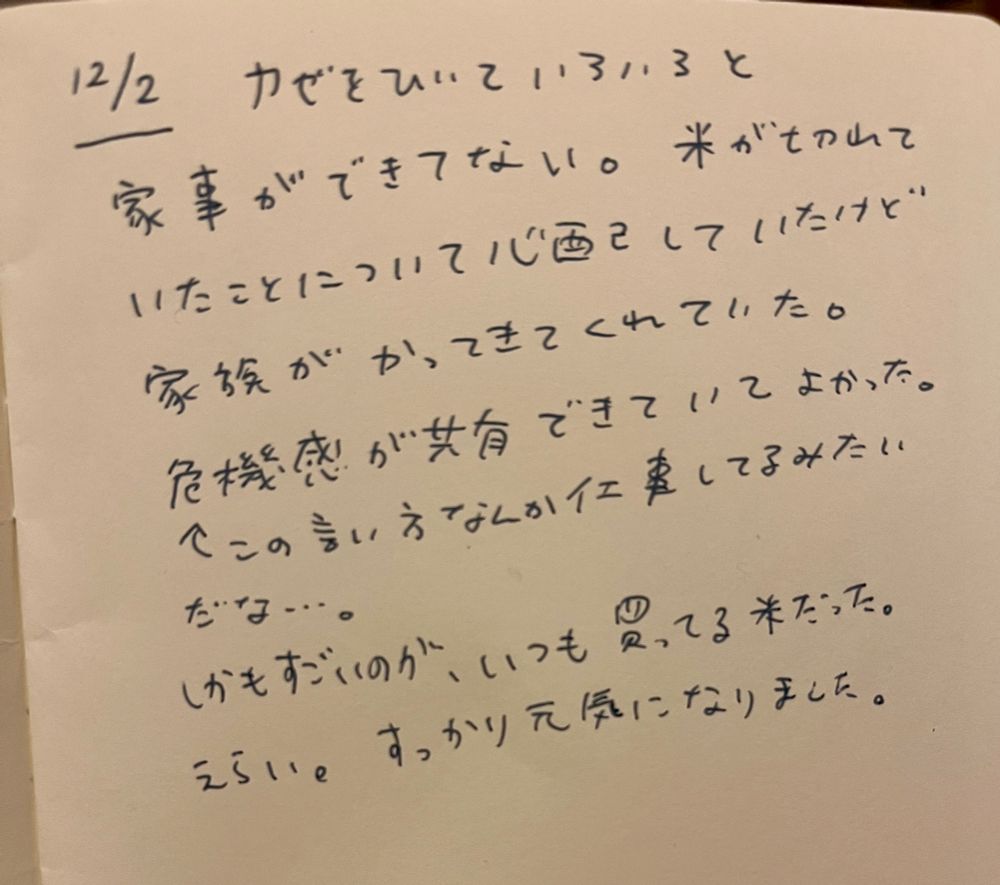 12/2 カゼをひいていろいろと
家事ができてない。米が切れて
いたことについて心配していたけど
家族がかってきてくれていた。
危機感が共有できていてよかった。
↑この言い方なんか仕事してるみたい
だな…。
しかもすごいのが、いつも買ってる米だった。
えらい。すっかり元気になりました。